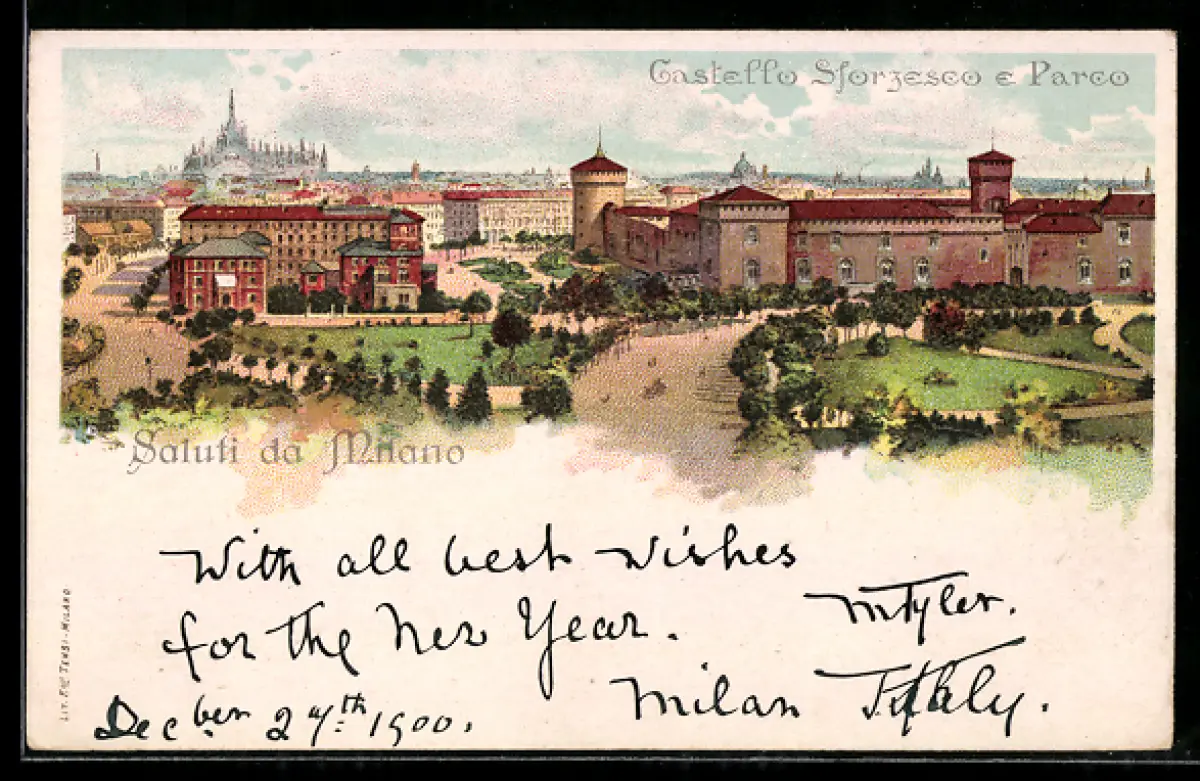 Castello Sforzesco e Parco
Saluti da Milano
With all best wishes
for the New Year.
MTyler.
Milan Italy.
Decber 27th 1900.
LIT. F.LLI TENSI-MILANO